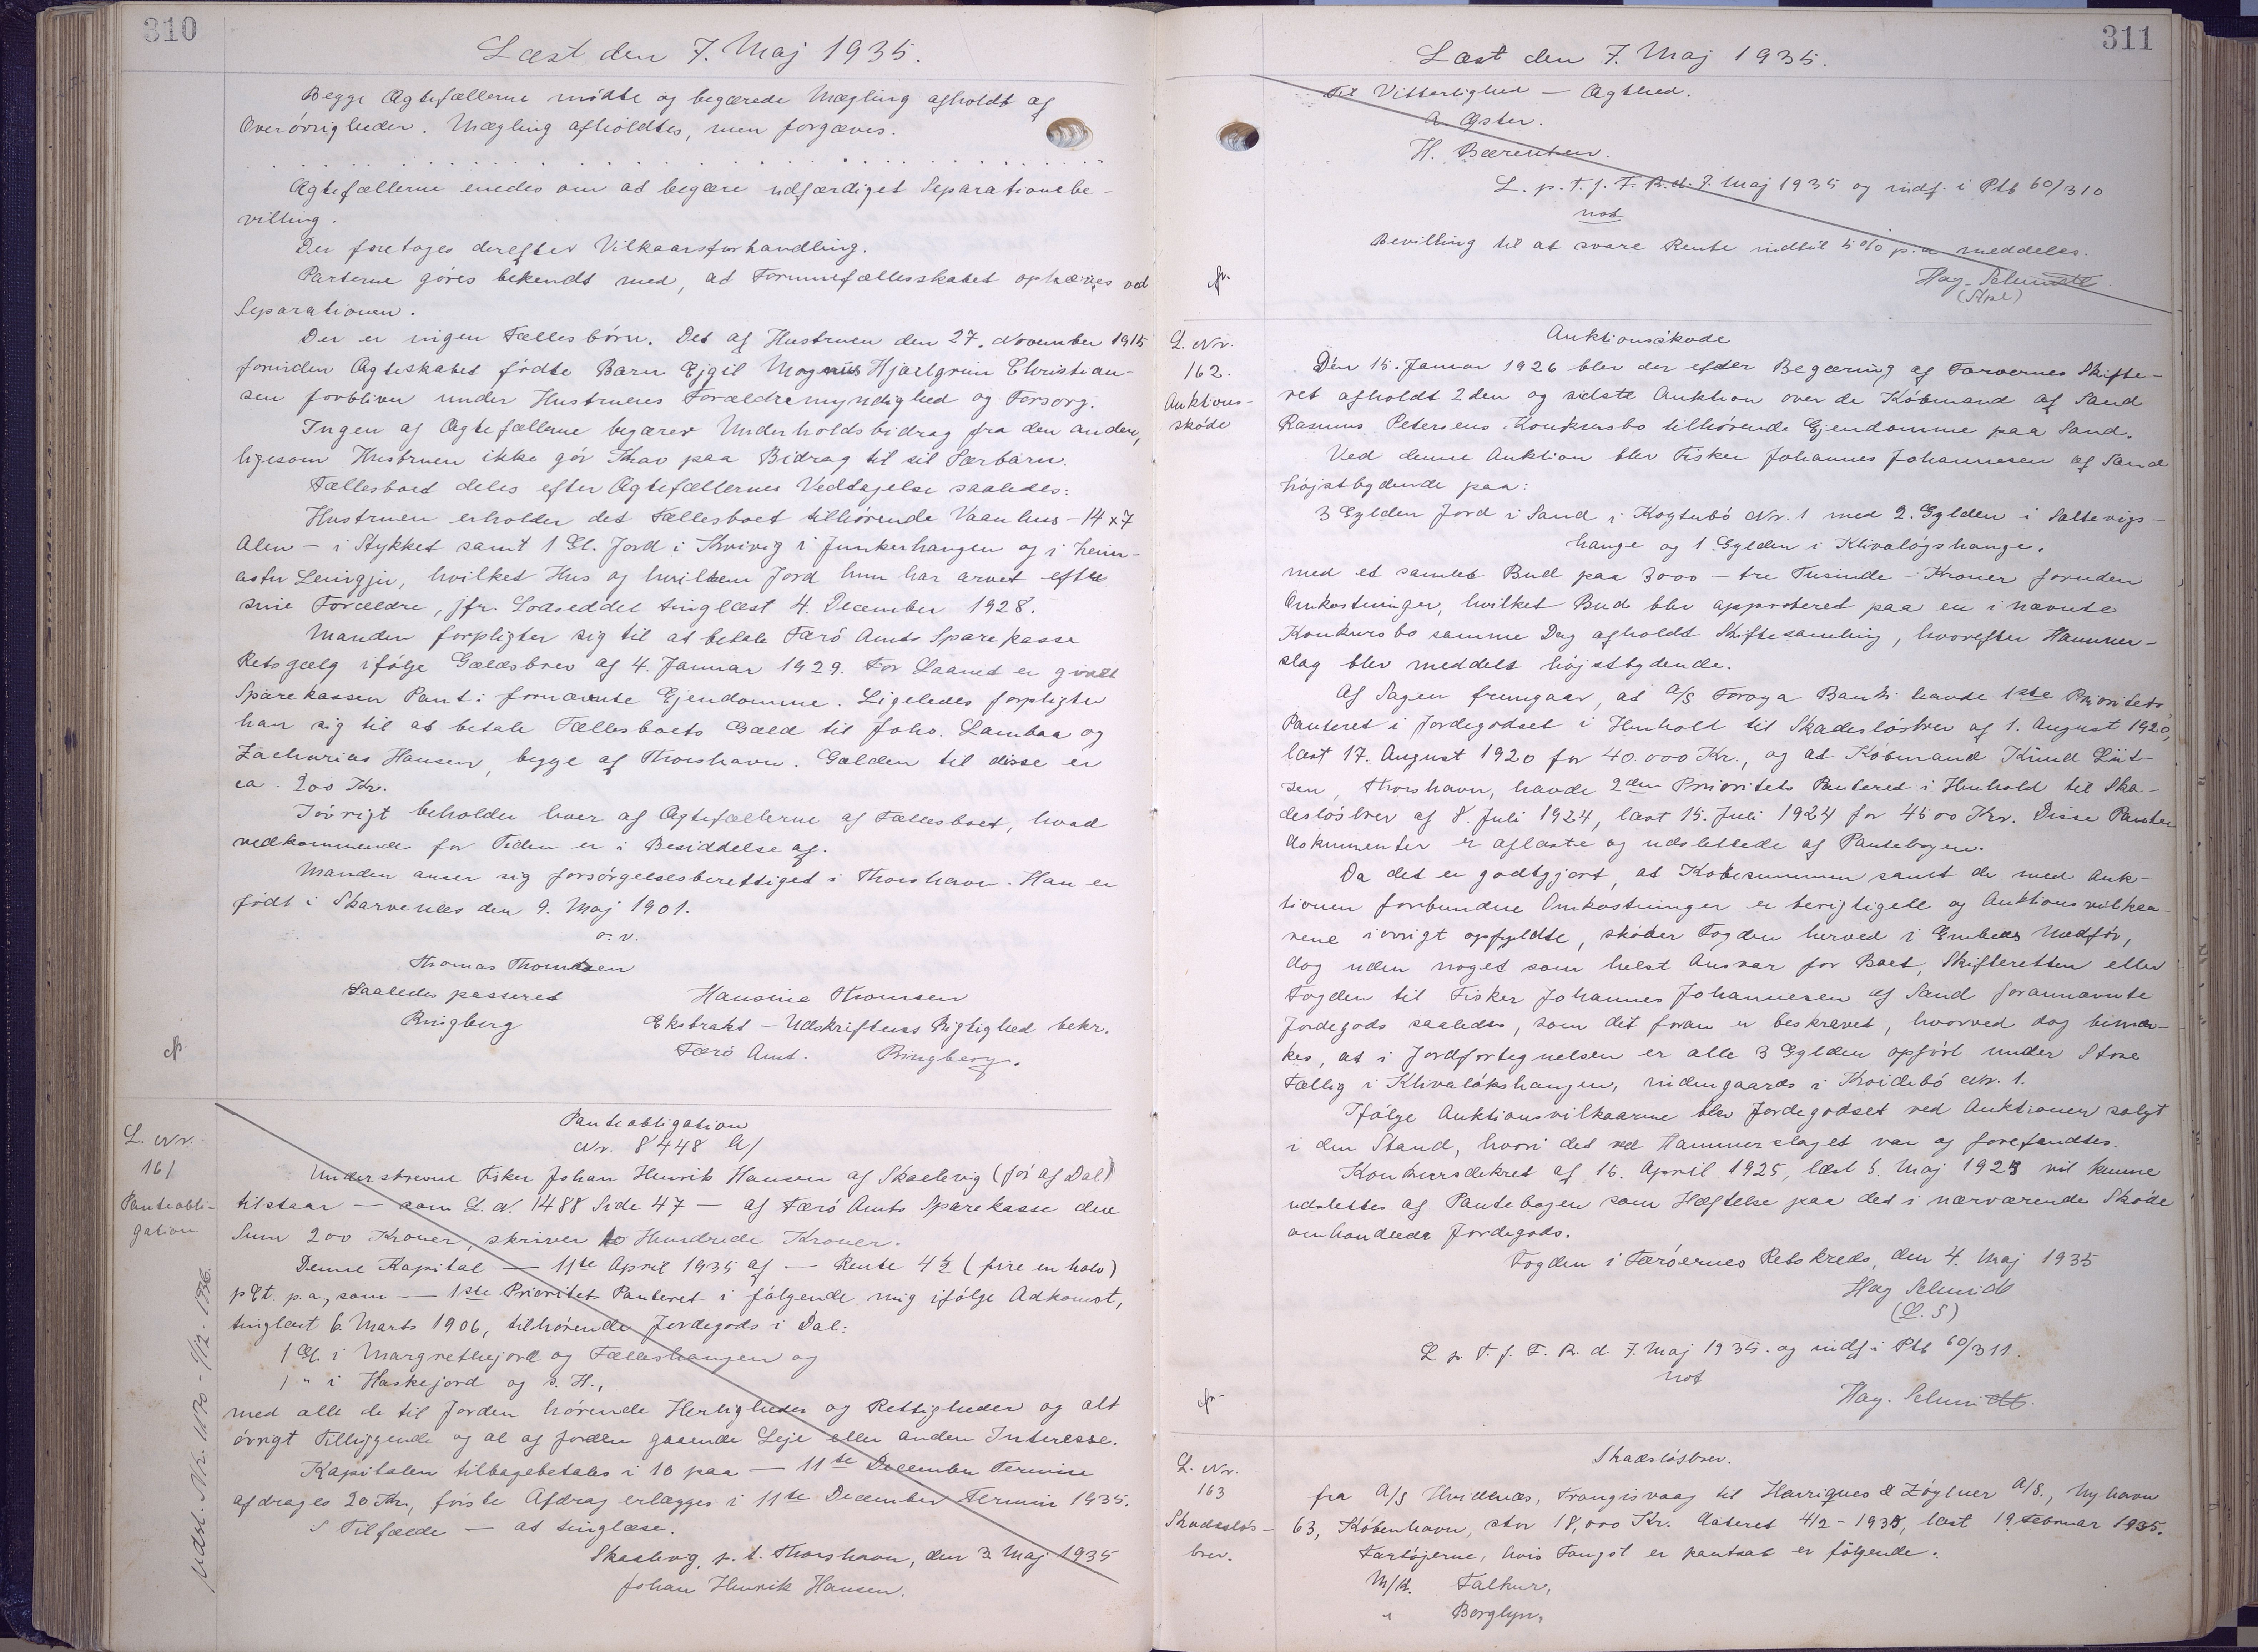 310
Læst den 7. Maj 1935.
Begge Ægtefællerne mødte og begærede Mægling afholdt af
Overøvrigheden. Mægling afholdtes, men forgæves.
Ægtefællerne enedes om at begære udfærdiget Separationsbe-
villing.
Der foretoges derefter Vilkaarsforhandling.
Parterne gøres bekendt med, at Formuefællesskabet ophæves ved
Separationen.
Der er ingen Fællesbørn. Det af Hustruen den 27. November 1915
forinden Ægteskabet fødte Barn Ejgil Magnus Hjalgrim Christian-
sen forbliver under Hustruens Forældremyndighed og Forsorg.
Ingen af Ægtefællerne begærer Underholdsbidrag fra den anden,
ligesom Hustruen ikke gør Krav paa Bidrag til sit Særbarn.
Fællesboet deles efter Ægtefællernes Vedtagelse saaledes:
Hustruen erholder det Fællesboet tilhørende Vaanhus - 14 x 7
Alen - i Stykket samt 1 Gl. Jord i Kvivig i Junkerhangen og i heim-
astu Lengju, hvilket Hus og hvilken Jord hun har arvet efter
sine Forældre, jfr. Lodseddel tinglæst 4. December 1928.
Manden forpligter sig til at betale Færø Amts Sparekasse
Retsgælg ifølge Gældsbrev af 4. Januar 1929. For Laanet er givet
Sparekassen Pant i fornævnte Ejendomme. Ligeledes forpligter
han sig til at betale Fællesboets Gæld til Johs. Lambaa og
Zacharias Hansen, begge af Thorshavn. Gælden til disse er
ca. 200 Kr.
Iøvrigt beholder hver af Ægtefællerne af Fællesboet, hvad
vedkommende for Tiden er i Besiddelse af.
Manden anser sig forsørgelsesberettiget i Thorshavn. Han er
født i Skarvenes den 9. Maj 1901.
o. v.
Thomas Thomsen
Saaledes passeret Hansine Thomsen
Ringberg Ekstrakt - Udskriftens Rigtighed bekr.
Færø Amt. Ringberg.
L. Nr.
161
Panteobli-
gation
Udsl. Nr. 1170 - 9/12 - 1936.
Panteobligation
Nr. 8448 A/
Understrevne Fisker Johan Henrik Hansen af Skaelevig (før af Dal)
tilstaar - som L. N. 1488 Side 47 - af Færø Amts Sparekasse den
Sum 200 Kroner, skriver to Hundrede Kroner.
Denne Kapital - 11te April 1935 af - Rente 4½ (fire en halv)
pCt. p.a., som - 1ste Prioritets Panteret i følgende mig ifølge Adkomst,
tinglæst 6. Marts 1906, tilhørende Jordegods i Dal:
1 Gl. i Margrethejord og Fælleshangen og
1 " i Haskejord og s. H.,
med alle de til Jorden hørende Herligheder og Rettigheder og alt
øvrigt Tilliggende og al af Jorden gaaende Leje eller anden Interesse.
Kapitalen tilbagebetales i 10 paa - 11te December Termine
afdrages 20 Kr., første Afdrag erlægges i 11te December Termin 1935.
I Tilfælde - at tinglæse.
Skaalevig, p. t. Thorshavn, den 3. Maj 1935
Johan Henrik Hansen.
311
Læst den 7. Maj 1935.
Til Vitterlighed - Ægthed.
A. Øster.
H. Bærentsen.
L. p. T. f. F. R. d. 7. Maj 1935 og indf. i Ptb 60/310
not
Bevilling til at svare Rente indtil 5% p.a. meddeles.
Hag. Schmidt.
L. Nr.
162.
Auktions-
skøde
Auktionsskøde
Den 15. Januar 1926 blev der efter Begæring af Færøernes Skifte-
ret afholdt 2den og sidste Auktion over de Købmand af Sand
Rasmus Petersens Konkursbo tilhørende Ejendomme paa Sand.
Ved denne Auktion blev Fisker Johannes Johannesen af Sand
højstbydende paa:
3 Gylden Jord i Sand i Kogtubø Nr. 1 med 2. Gylden i Saltevigs-
hange og 1 Gylden i Klivaløgshange,
med et samlet Bud paa 3000 - tre Tusinde - Kroner foruden
Omkostninger, hvilket Bud blev approberet paa en i nævnte
Konkursbo samme Dag afholdt Skiftesamling, hvorefter Hammer-
slag blev meddelt højstbydende.
Af Sagen fremgaar, at A/S Føroya Banki havde 1ste Prioritets
Panteret i Jordegodset i Henhold til Skadesløsbrev af 1. August 1920,
læst 17. August 1920 for 40.000 Kr., og at Købmand Knud Lüt-
zen, Thorshavn, havde 2den Prioritets Panteret i Henhold til Ska-
desløsbrev af 8. Juli 1924, læst 15. Juli 1924 for 4500 Kr. Disse Pante-
dokumenter er aflæste og udslettede af Pantebogen.
Da det er godtgjort, at Købesummen samt de med Auk-
tionen forbundne Omkostninger er berigtigede og Auktionsvilkaa-
rene iøvrigt opfyldte, skøder Fogden herved i Embeds Medfør,
dog uden noget som helst Ansvar for Boet, Skifteretten eller
Fogden til Fisker Johannes Johannesen af Sand forannævnte
Jordegods saaledes, som det foran er beskrevet, hvorved dog bemær-
kes, at i Jordfortegnelsen er alle 3 Gylden opført under Store
Fællig i Klivaløkshangen, indengaards i Kvidebø Nr. 1.
Ifølge Auktionsvilkaarene blev Jordegodset ved Auktionen solgt
i den Stand, hvori det ved Hammerslaget var og forefandtes.
Konkursdekret af 16. April 1925, læst 5. Maj 1925 vil kunne
udslettes af Pantebogen som Hæftelse paa det i nærværende Skøde
omhandlede Jordegods.
Fogden i Færøernes Retskreds, den 4. Maj 1935
Hag Schmidt
(L. S)
L p. T. f. F. R. d. 7. Maj 1935. og indf. i Ptb 60/311.
not
Hag. Schmidt.
L. Nr.
163
Skadesløs-
brev.
Skadesløsbrev.
fra A/S Hvidenæs, Trangisvaag til Henriques & Zøylner A/S., Nyhavn
63, København, stor 18,000 Kr. dateret 4/2 - 1935, læst 19. Februar 1935.
Fartøjerne, hvis Fangst er pantsat er følgende:
M/K. Falkur,
" Berglyn,